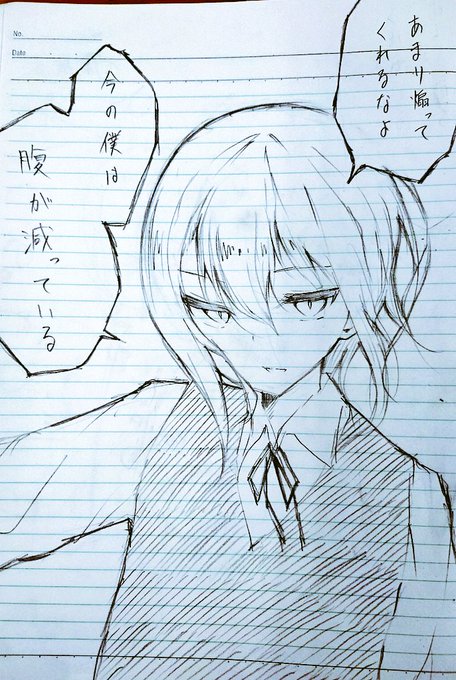 No.
Date
あまり煽って
くれるなよ
今の僕は
腹が減っている